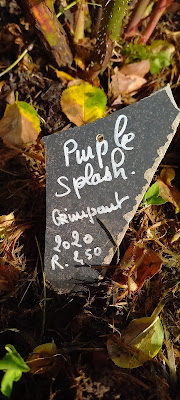 Purple
Splash.
Grimpant
2020
R. 450